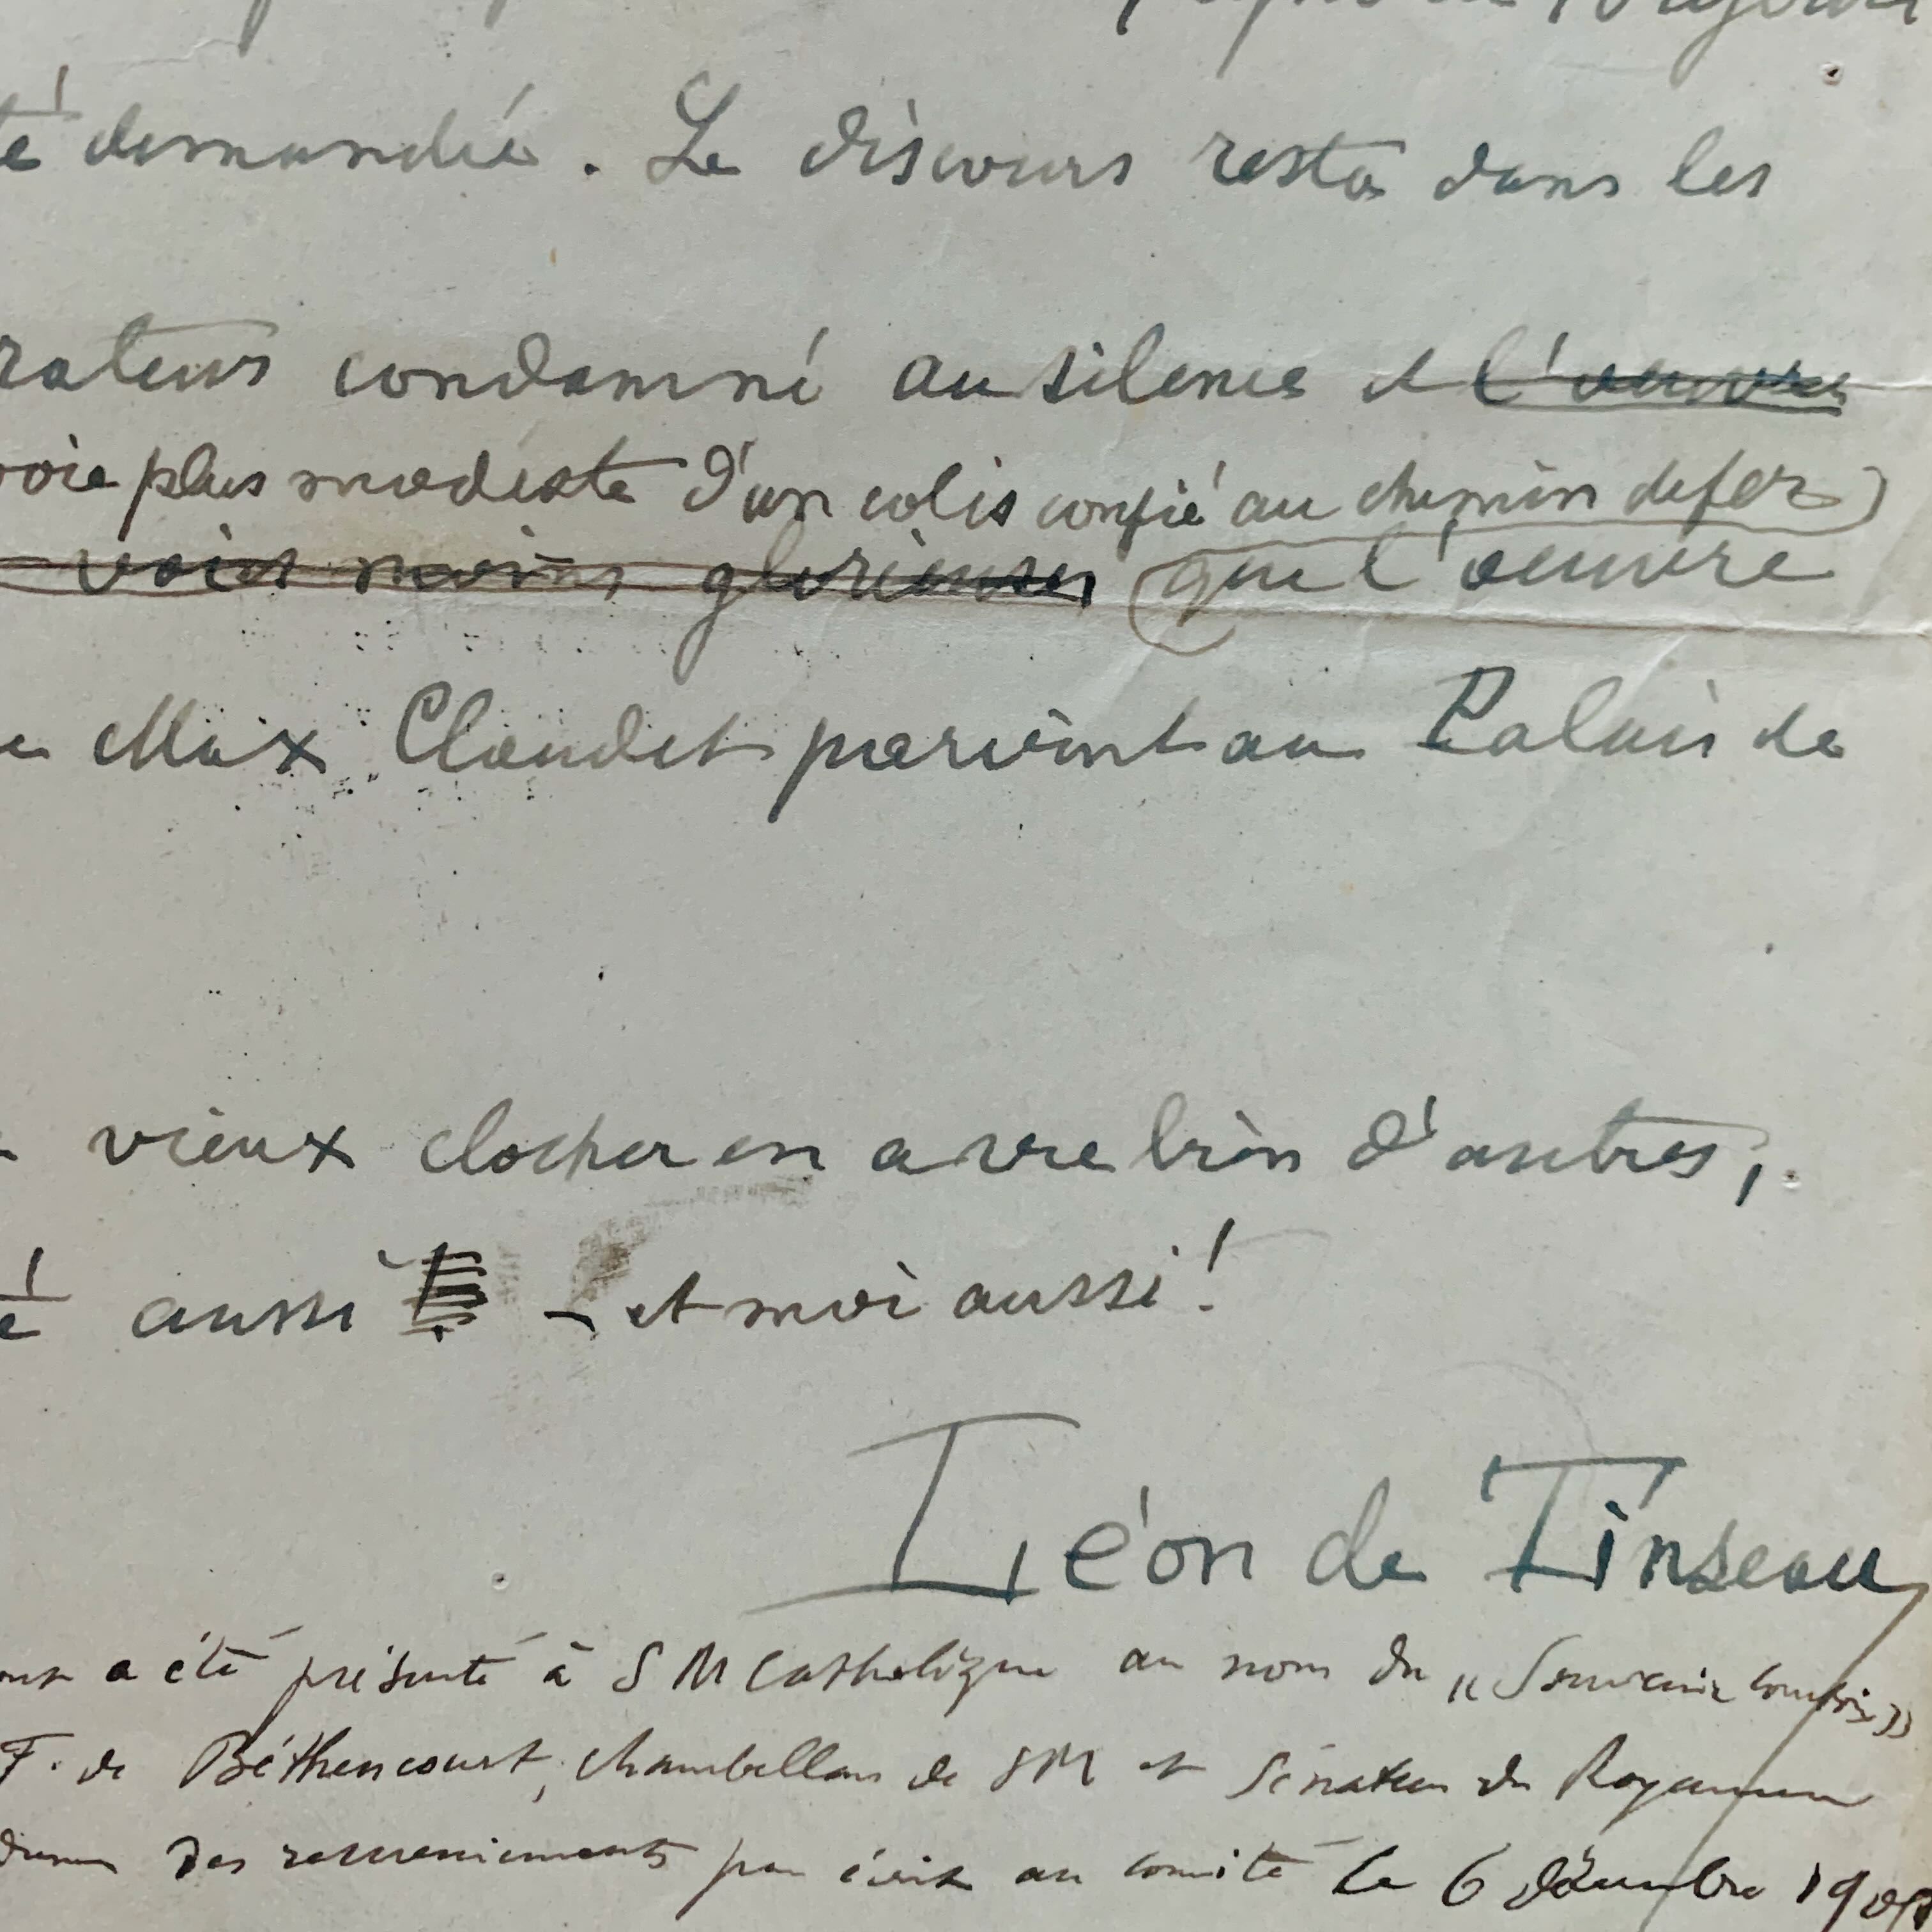 té demandée. Le discours resta dans les
rateurs condamné au silence et l'œuvre
voie plus modeste d'un colis confié au chemin de fer)
voies moins glorieuses (que l'œuvre
Max Claudet parvint au Palais de
vieux clocher en a vu bien d'autres,
é aussi - et moi aussi!
Léon de Tinseau
a été présenté à S M Catholique au nom du "Souvenir comtois"
F. de Béthencourt, chambellan de SM et Sénateur du Royaume
des remerciements par écrit au comité le 6 décembre